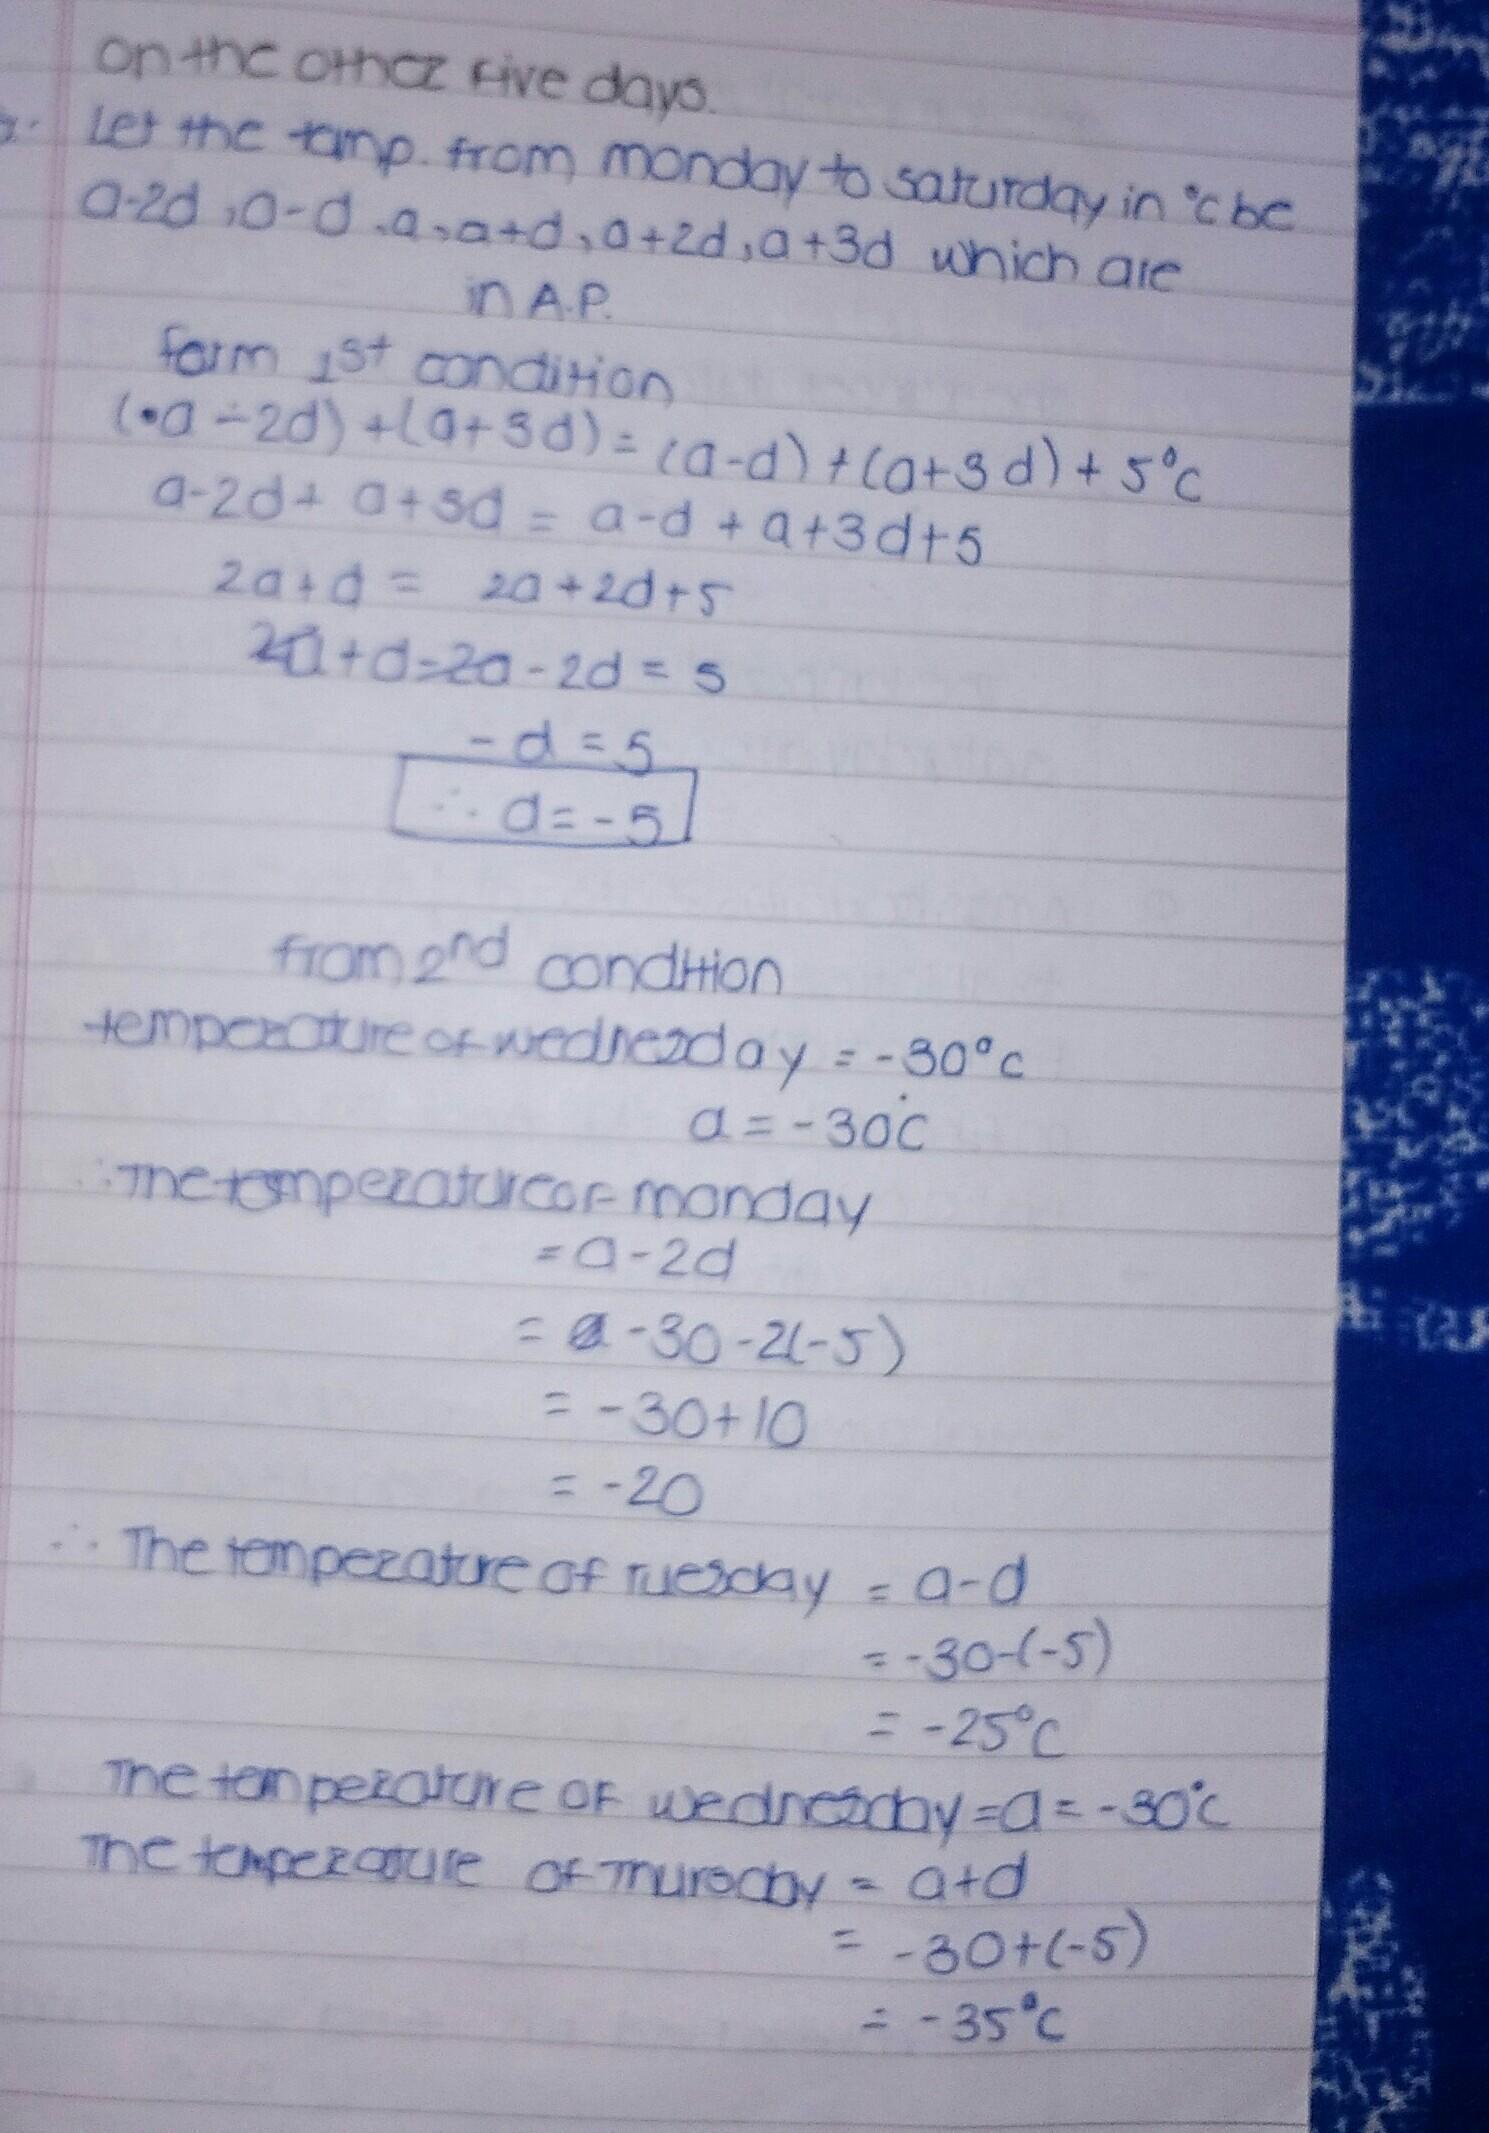 on the other five days.
Let the temp. from monday to saturday in °c be
a-2d, a-d, a, a+d, a+2d, a+3d which are
in A.P.
form 1st condition
(a-2d)+(a+3d)=(a-d)+(a+3d)+5°C
a-2d+a+3d = a-d+a+3d+5
2a+d = 2a+2d+5
2a+d-2a-2d = 5
-d = 5
∴ d=-5
from 2nd condition
temperature of wednesday = -30°c
a = -30°C
∴ The temperature of monday
= a-2d
= -30-2(-5)
= -30+10
= -20
∴ The temperature of Tuesday = a-d
= -30-(-5)
= -25°C
The temperature of wednesday = a = -30°c
The temperature of Thursday = a+d
= -30+(-5)
= -35°C